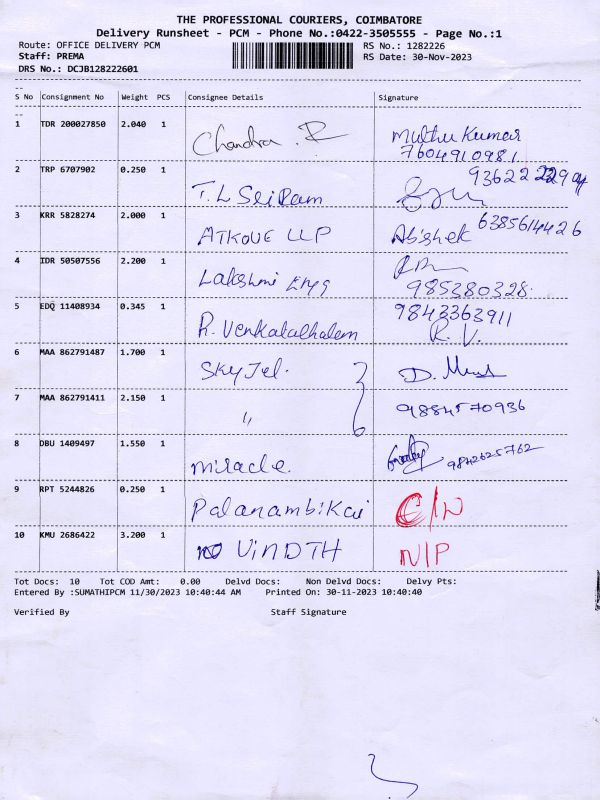 THE PROFESSIONAL COURIERS, COIMBATORE
Delivery Runsheet - PCM - Phone No.:0422-3505555 - Page No.:1
Route: OFFICE DELIVERY PCM RS No.: 1282226
Staff: PREMA RS Date: 30-Nov-2023
DRS No.: DCJB128222601
S No Consignment No Weight PCS Consignee Details Signature
1 TDR 200027850 2.040 1 Chandra . R Muthu Kumar
7604910981
2 TRP 6707902 0.250 1 T. L SriRam 93622
3 KRR 5828274 2.000 1 ATKOVE LLP Abishek 6385614426
4 IDR 50507556 2.200 1 Lakshmi Eng
985380328
5 EDQ 11408934 0.345 1 R. Venkatalhalem 9843363911
R. V.
6 MAA 862791487 1.700 1 Sky Tel. D.
7 MAA 862791411 2.150 1 " 9884570936
8 DBU 1409497 1.550 1 miracle. 9842625762
9 RPT 5244826 0.250 1 Palanambikai C/N
10 KMU 2686422 3.200 1 VINOTH N/P
Tot Docs: 10 Tot COD Amt: 0.00 Delvd Docs: Non Delvd Docs: Delvy Pts:
Entered By :SUMATHIPCM 11/30/2023 10:40:44 AM Printed On: 30-11-2023 10:40:40
Verified By Staff Signature